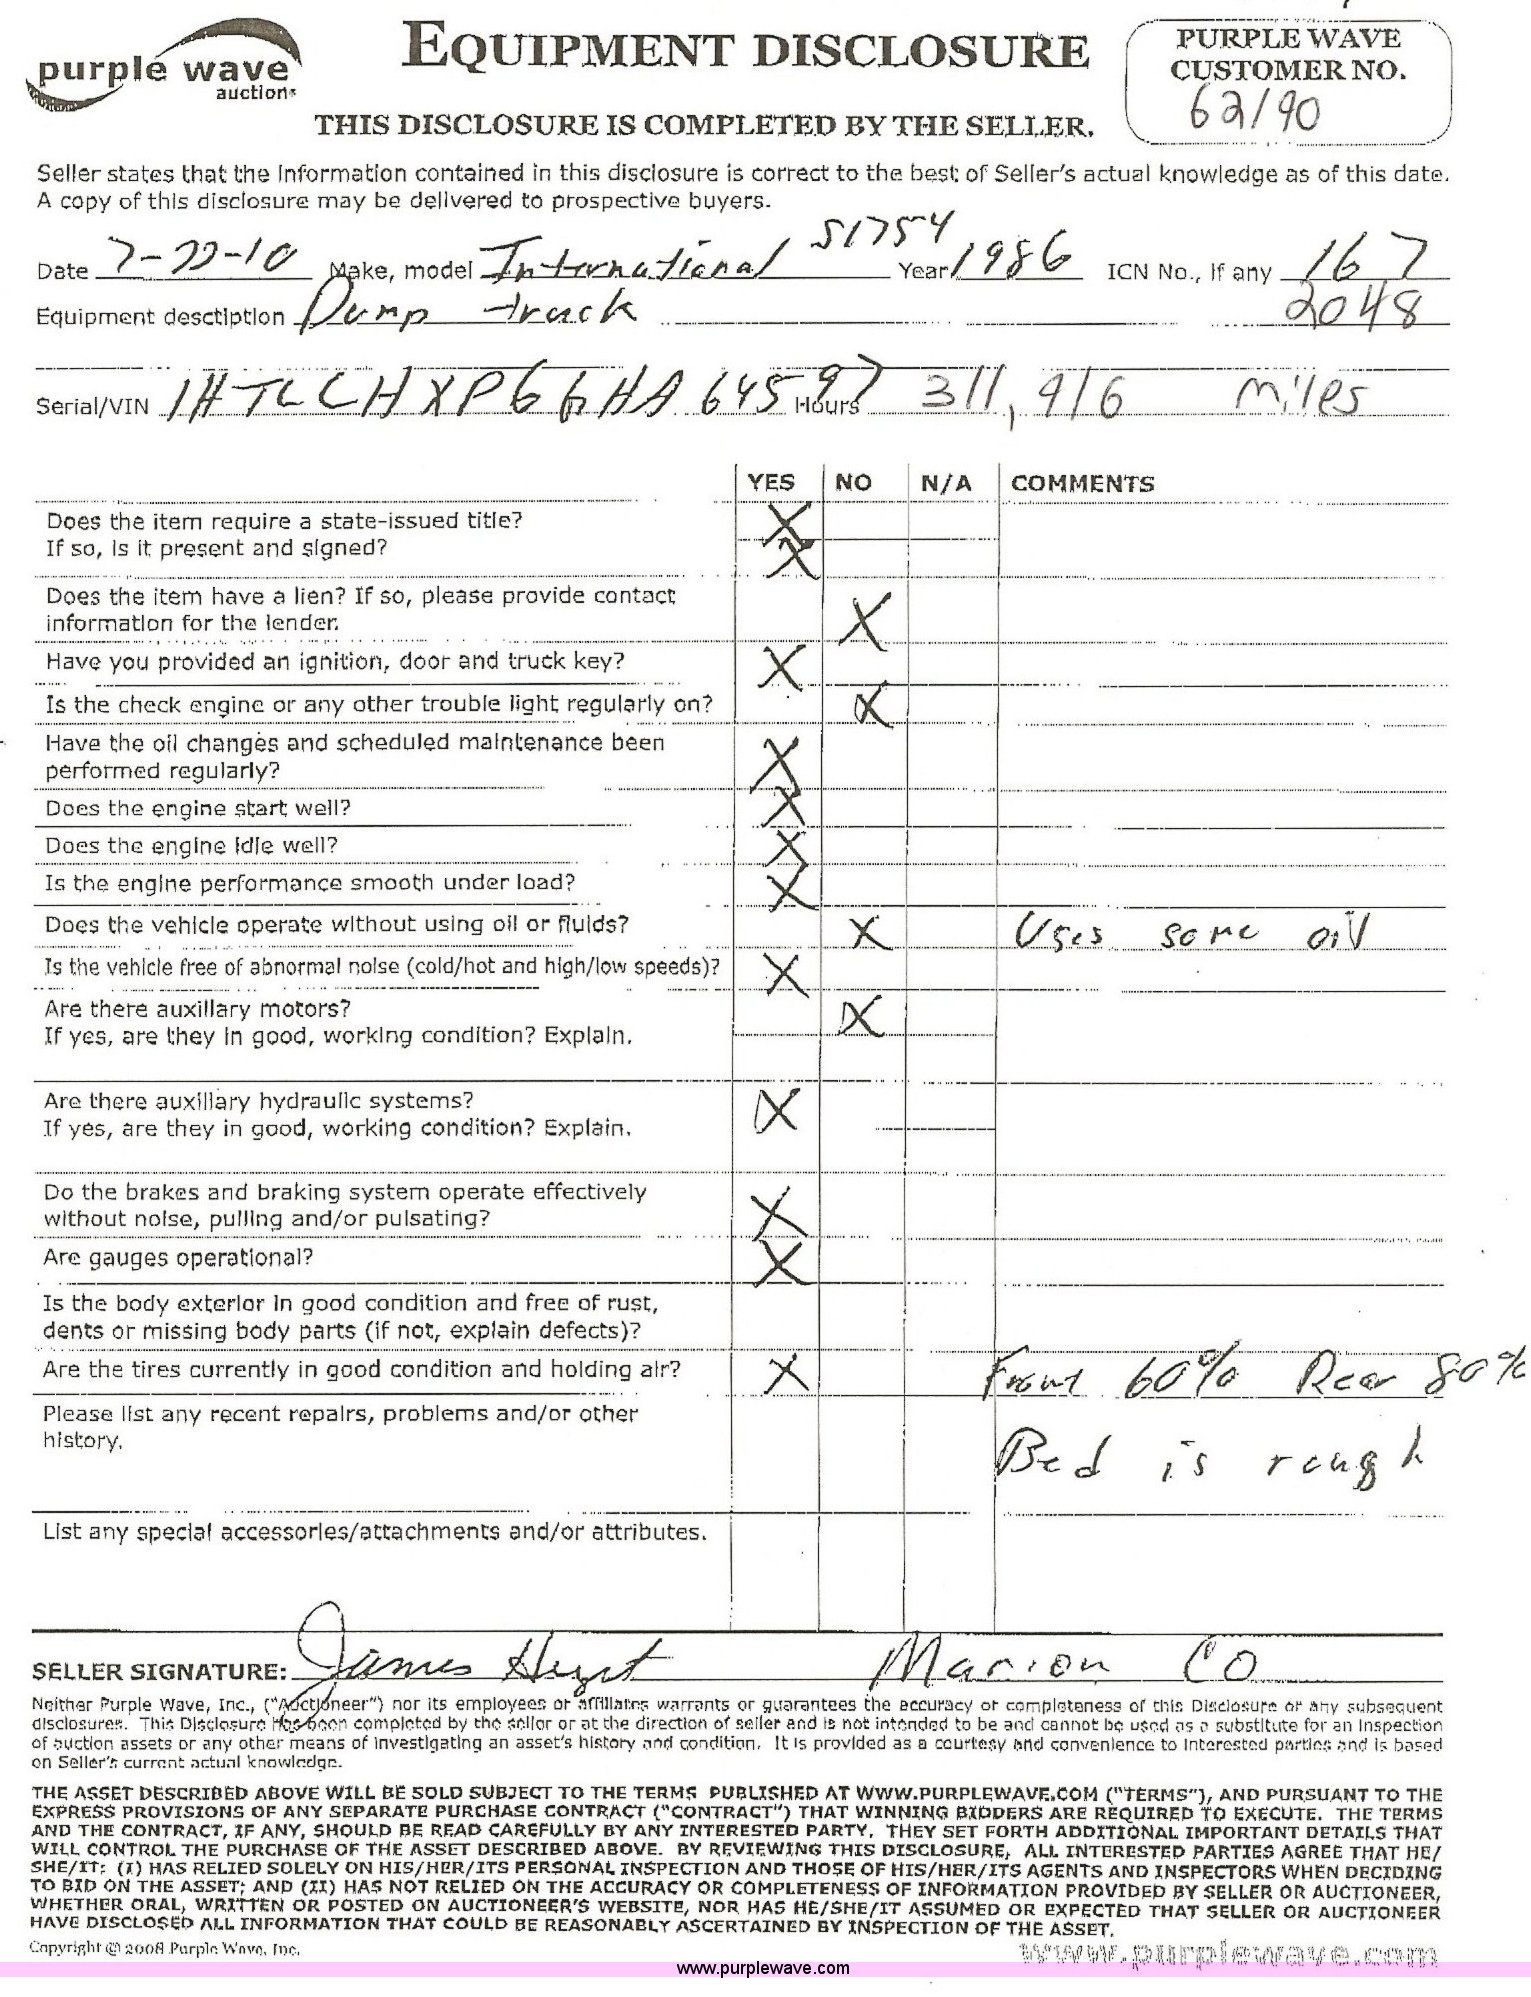 purple wave
auction
EQUIPMENT DISCLOSURE
THIS DISCLOSURE IS COMPLETED BY THE SELLER.
PURPLE WAVE
CUSTOMER NO.
62190
Seller states that the information contained in this disclosure is correct to the best of Seller's actual knowledge as of this date.
A copy of this disclosure may be delivered to prospective buyers.
Date 7-22-10 Make, model International S1754 Year 1986 ICN No., if any 167
Equipment desctiption Dump truck 2048
Serial/VIN 1HTLCHXP6GHA64597 Hours 311,916 miles
YES NO N/A COMMENTS
Does the item require a state-issued title? X
If so, is it present and signed? X
Does the item have a lien? If so, please provide contact
information for the lender. X
Have you provided an ignition, door and truck key? X
Is the check engine or any other trouble light regularly on? X
Have the oil changes and scheduled maintenance been
performed regularly? X
Does the engine start well? X
Does the engine idle well? X
Is the engine performance smooth under load? X
Does the vehicle operate without using oil or fluids? X Uses some oil
Is the vehicle free of abnormal noise (cold/hot and high/low speeds)? X
Are there auxiliary motors? X
If yes, are they in good, working condition? Explain.
Are there auxiliary hydraulic systems? X
If yes, are they in good, working condition? Explain.
Do the brakes and braking system operate effectively
without noise, pulling and/or pulsating? X
Are gauges operational? X
Is the body exterior in good condition and free of rust,
dents or missing body parts (if not, explain defects)?
Are the tires currently in good condition and holding air? X Front 60% Rear 80%
Please list any recent repairs, problems and/or other
history. Bed is rough
List any special accessories/attachments and/or attributes.
SELLER SIGNATURE: James Marion Co
Neither Purple Wave, Inc., ("Auctioneer") nor its employees or affiliates warrants or guarantees the accuracy or completeness of this Disclosure or any subsequent
disclosures. This Disclosure has been completed by the seller or at the direction of seller and is not intended to be and cannot be used as a substitute for an inspection
of auction assets or any other means of investigating an asset's history and condition. It is provided as a courtesy and convenience to interested parties and is based
on Seller's current actual knowledge.
THE ASSET DESCRIBED ABOVE WILL BE SOLD SUBJECT TO THE TERMS PUBLISHED AT WWW.PURPLEWAVE.COM ("TERMS"), AND PURSUANT TO THE
EXPRESS PROVISIONS OF ANY SEPARATE PURCHASE CONTRACT ("CONTRACT") THAT WINNING BIDDERS ARE REQUIRED TO EXECUTE. THE TERMS
AND THE CONTRACT, IF ANY, SHOULD BE READ CAREFULLY BY ANY INTERESTED PARTY. THEY SET FORTH ADDITIONAL IMPORTANT DETAILS THAT
WILL CONTROL THE PURCHASE OF THE ASSET DESCRIBED ABOVE. BY REVIEWING THIS DISCLOSURE, ALL INTERESTED PARTIES AGREE THAT HE/
SHE/IT: (I) HAS RELIED SOLELY ON HIS/HER/ITS PERSONAL INSPECTION AND THOSE OF HIS/HER/ITS AGENTS AND INSPECTORS WHEN DECIDING
TO BID ON THE ASSET; AND (II) HAS NOT RELIED ON THE ACCURACY OR COMPLETENESS OF INFORMATION PROVIDED BY SELLER OR AUCTIONEER,
WHETHER ORAL, WRITTEN OR POSTED ON AUCTIONEER'S WEBSITE, NOR HAS HE/SHE/IT ASSUMED OR EXPECTED THAT SELLER OR AUCTIONEER
HAVE DISCLOSED ALL INFORMATION THAT COULD BE REASONABLY ASCERTAINED BY INSPECTION OF THE ASSET.
Copyright © 2008 Purple Wave, Inc. www.purplewave.com
www.purplewave.com